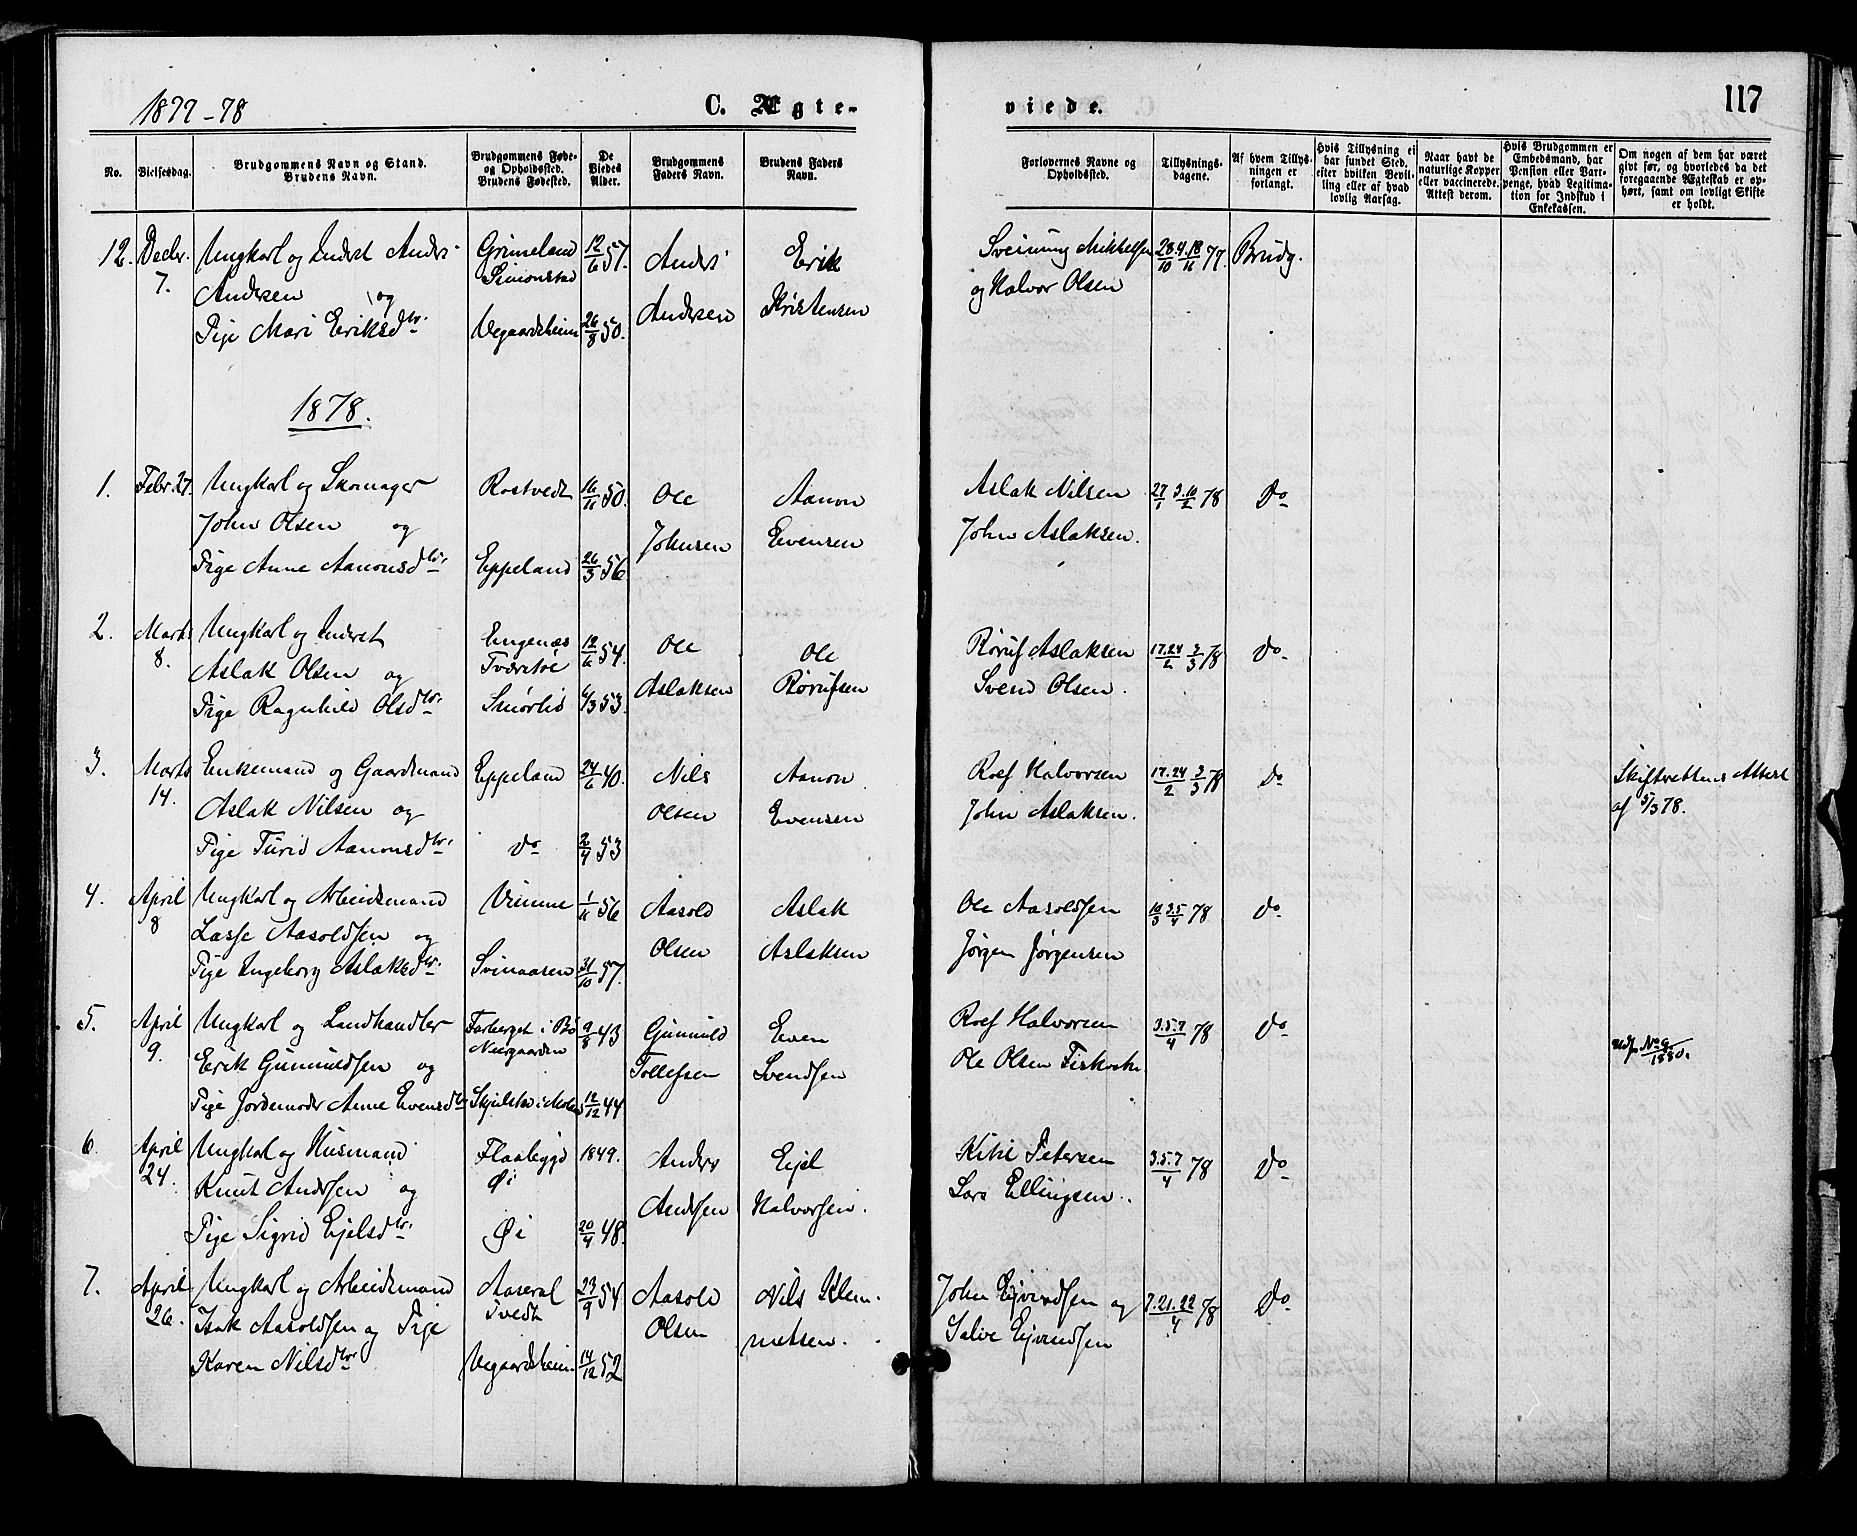 1877-78
C. Ægte-
viede.
117
No.
Vielsesdag.
Brudgommens Navn og Stand.
Brudens Navn.
Brudgommens Føde-
og Opholdssted.
Brudens Fødested.
De
Viedes
Alder.
Brudgommens
Faders Navn.
Brudens Faders
Navn.
Forlovernes Navne og
Opholdssted.
Tillysnings-
dagene.
Af hvem Tillys-
ningen er
forlangt.
Hvis Tillysning ei
har fundet Sted,
efter hvilken Bevil-
ling eller af hvad
lovlig Aarsag.
Naar havt de
naturlige Kopper
eller vaccinerede.
Attest derom.
Hvis Brudgommen er
Embedsmand, har
Pension eller Vart-
penge, hvad Legitima-
tion for Indskud i
Enkekassen.
Om nogen af dem har været
gift før, og hvorledes da det
foregaaende Ægteskab er op-
hørt, samt om lovligt Skifte
er holdt.
12. Decbr. 7.
Ungkarl og Inderst Anders
Andersen og
Pige Mari Eriksdtr.
Grimeland
Simonstad
Vegaardsheim
12/6 57.
26/8 50.
Anders
Andersen
Erik
Kristensen
Sveinung Mikkelsen
og Halvor Olsen
28/10 4.18/11 77.
Brudg.
1878.
1. Febr. 27.
Ungkarl og Skomager
John Olsen og
Pige Anne Aanonsdtr.
Rostvedt
Eppeland
16/11 50.
26/3 56
Ole
Johnsen
Aanon
Evensen
Aslak Nilsen
John Aslaksen.
27/1 3.10/2 78
Do
2. Marts 8.
Ungkarl og Inderst
Aslak Olsen og
Pige Ragnhild Olsdtr.
Engenæs
Smørlid
12/6 54.
6/3 53.
Ole
Aslaksen
Ole
Rørufsen
Røruf Aslaksen
Svend Olsen.
17.24/2 3/3 78
Do
3. Marts 14.
Enkemand og Gaardmand
Aslak Nilsen og
Pige Turid Aanonsdtr.
Eppeland
do
24/6 40.
2/4 53
Nils
Olsen
Aanon
Evensen
Roef Halvorsen
John Aslaksen.
17.24/2 3/3 78
Do
Skifterettens Attest
af 5/3 78.
4. April 8
Ungkarl og Arbeidsmand
Lasse Aasoldsen og
Pige Ingeborg Aslaksdtr.
Vimme
Svinaasen
1/11 56
31/10 57.
Aasold
Olsen
Aslak
Aslaksen
Ole Aasoldsen
Jørgen Jørgensen
10/3 3.5/4 78
Do
5. April 9.
Ungkarl og Landhandler
Erik Gunnuldsen og
Pige Jordemoder Anne Evensdtr
Farberget i Bø
Neirgaarden
9/8 43
12/12 44
Gunnuld
Tollefsen
Even
Svendsen
Roef Halvorsen
Ole Olsen
3.5.7/4 78
Do
Udf. No 9/1880.
6. April 24.
Ungkarl og Husmand
Knut Andersen og
Pige Sigrid Ejelsdtr.
Flaabygd
Øi
Øi
1849.
20/4 48.
Anders
Andsen
Ejel
Halvorsen.
Kitil Petersen
Lars Ellingsen.
3.5.7/4 78
Do
7. April 26.
Ungkarl og Arbeidsmand
Isak Aasoldsen og Pige
Karen Nilsdtr
Aaseral
Tvedt
Vegaardsheim
23/9 54
14/12 52
Aasold
Olsen
Nils Klem-
metsen.
John Ejvindsen og
Salve Ejvindsen
7.21.22/4 78
Do